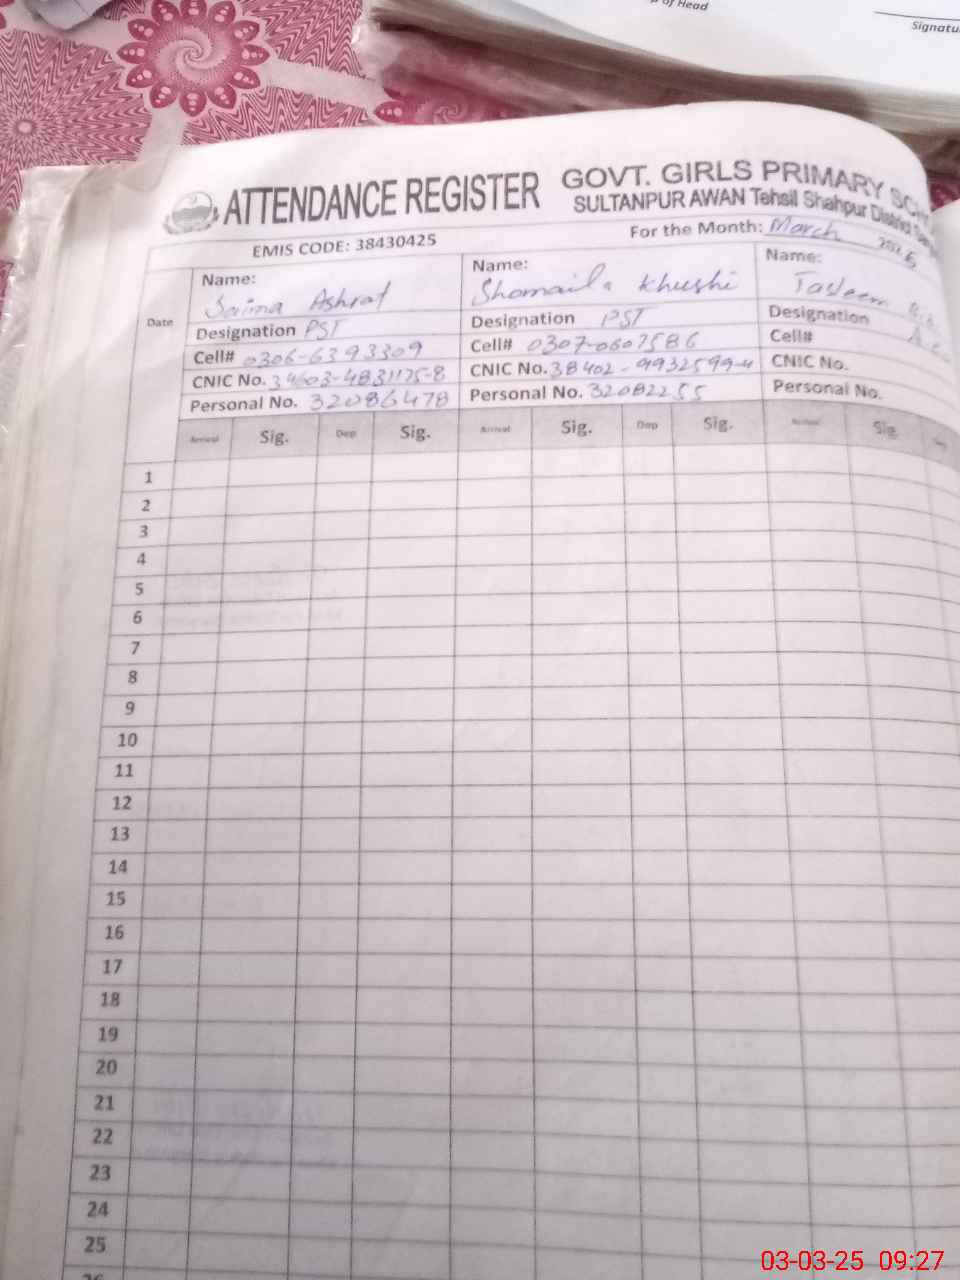 of Head
Signatu
ATTENDANCE REGISTER
GOVT. GIRLS PRIMARY SCH
SULTANPUR AWAN Tehsil Shahpur District Sar
EMIS CODE: 38430425
For the Month: March
Date
Name: Saima Ashraf
Designation PST
Cell# 0306-6393309
CNIC No. 34603-4831175-8
Personal No. 32086478
Name: Shomaila Khushi
Designation PST
Cell# 0307-0607586
CNIC No. 38402-9932599-4
Personal No. 32082255
Name: Tasleem
Designation
Cell#
CNIC No.
Personal No.
Arrival Sig. Dep Sig. Arrival Sig. Dep Sig. Arrival Sig. Dep
1
2
3
4
5
6
7
8
9
10
11
12
13
14
15
16
17
18
19
20
21
22
23
24
25
26
03-03-25 09:27